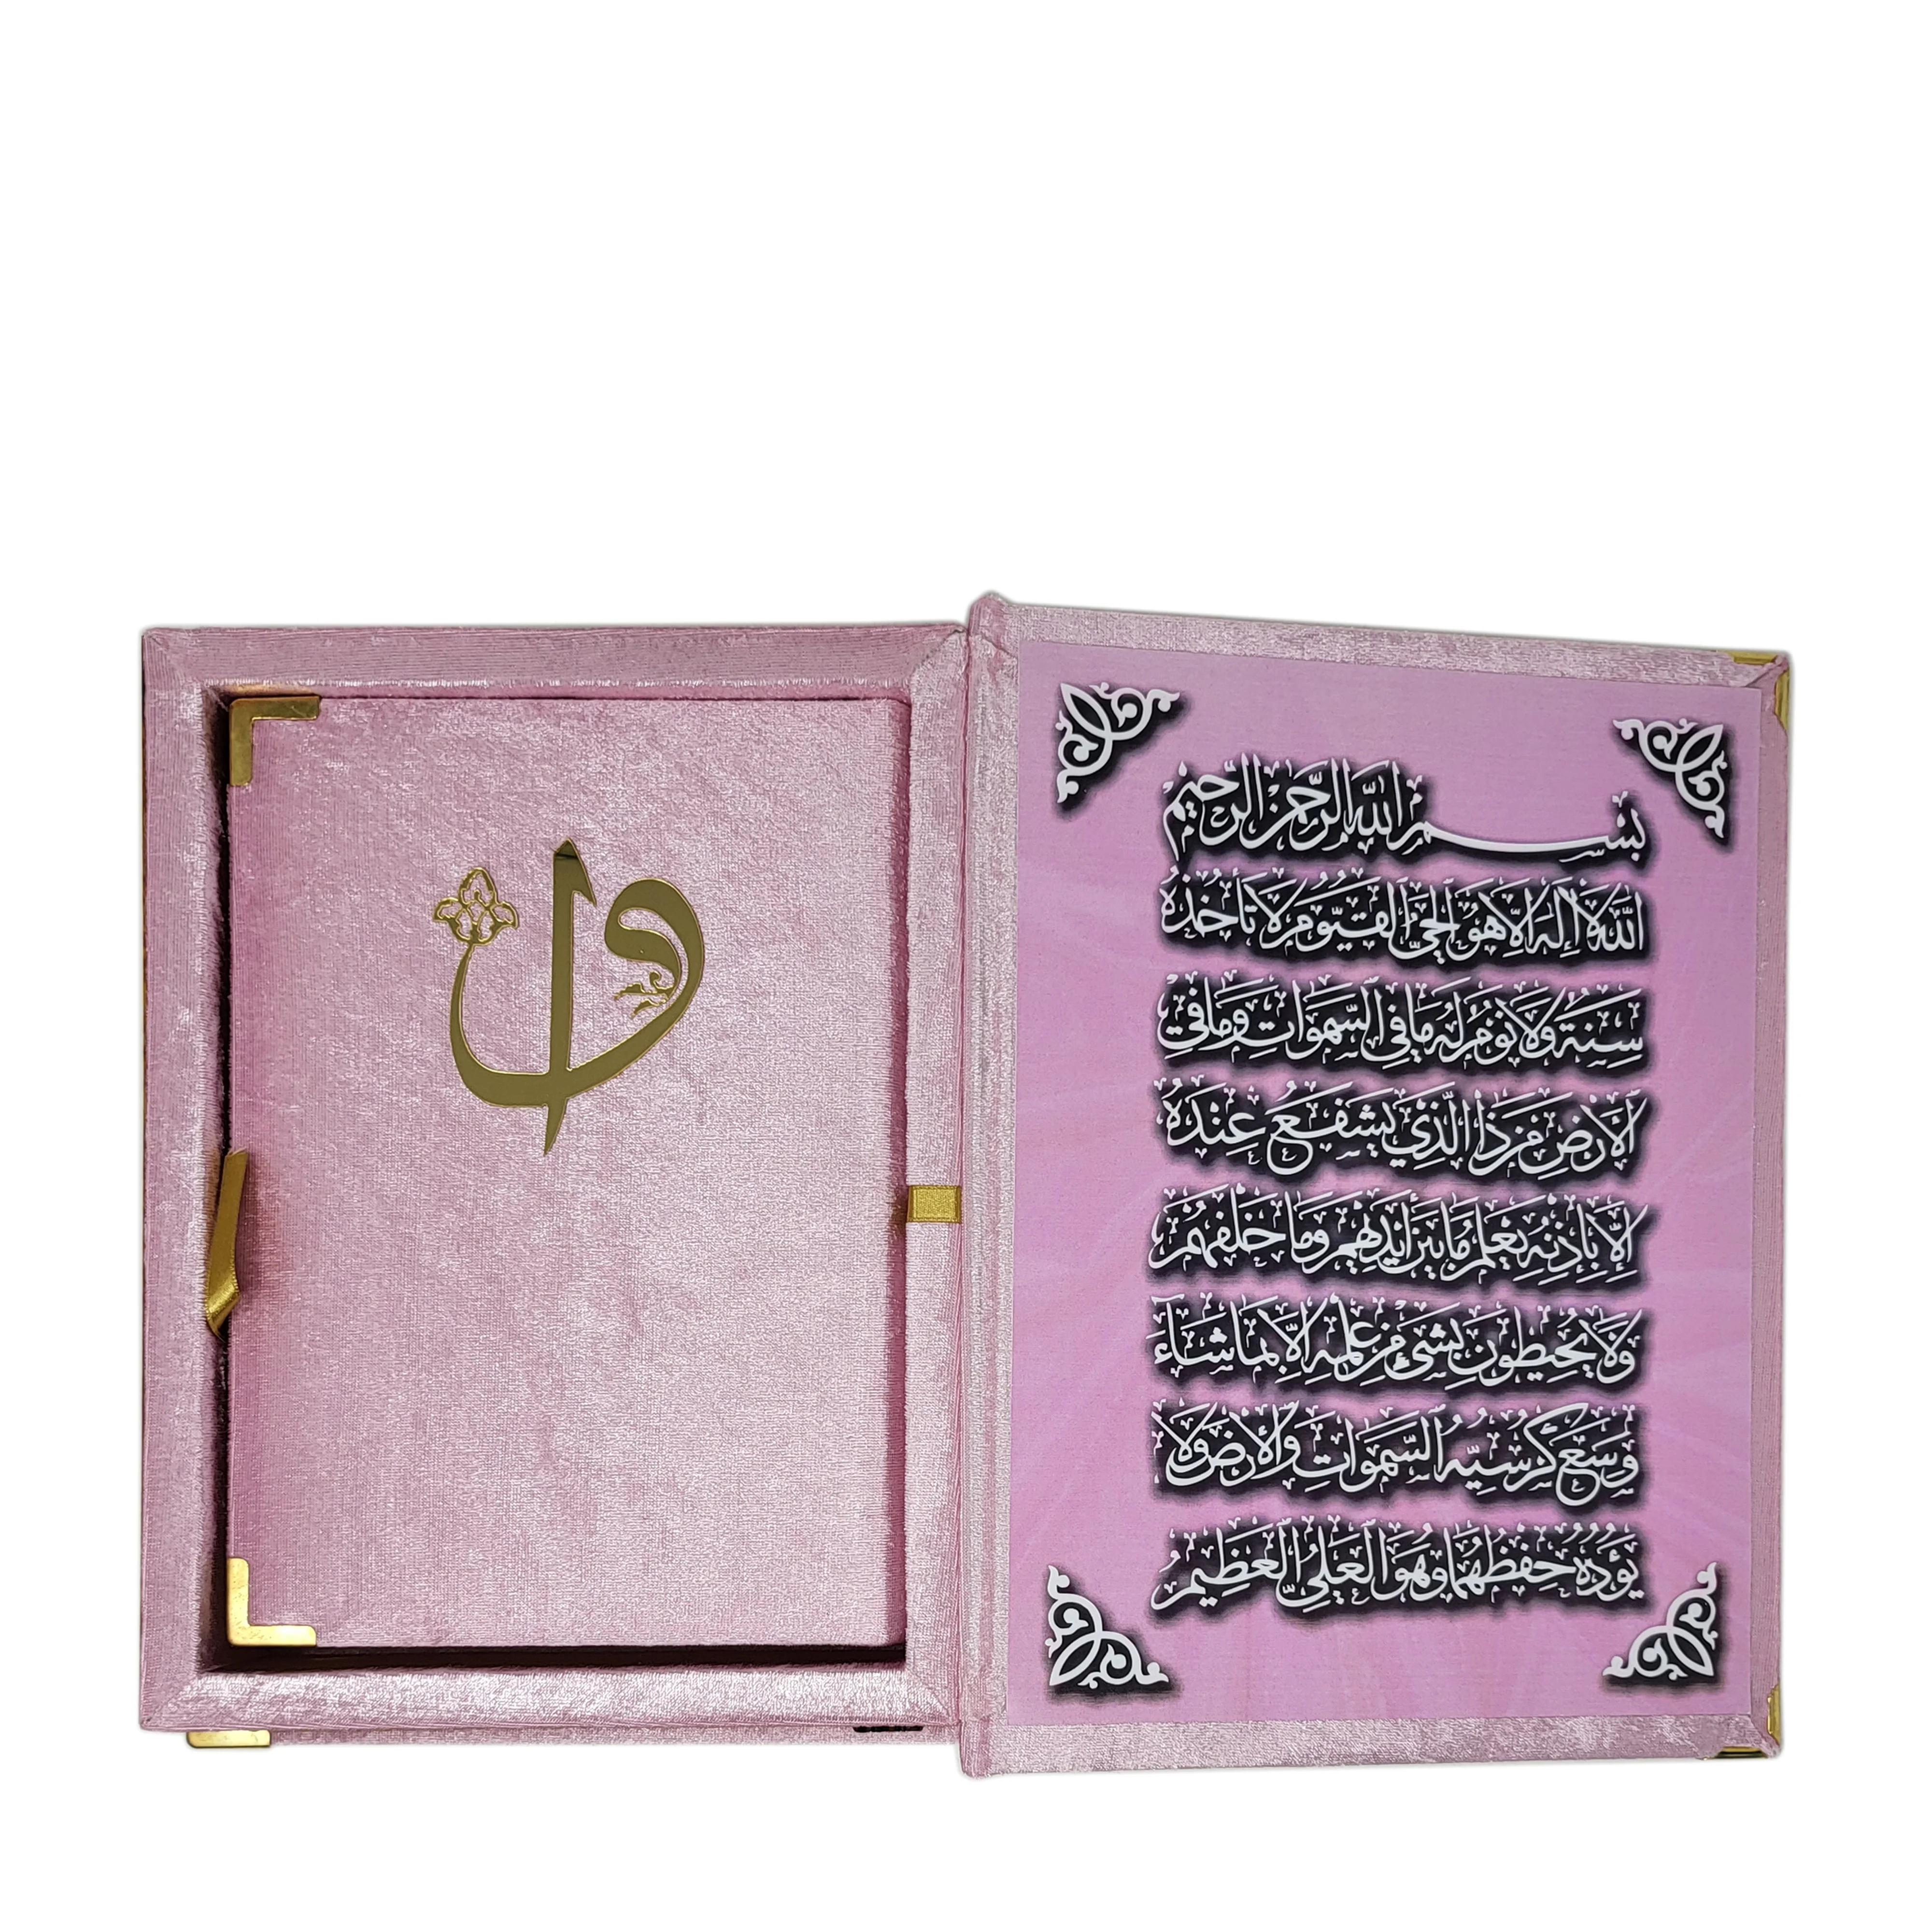 او
بسم الله الرحمن الرحيم
اَللّٰهُ لَا إِلٰهَ إِلَّا هُوَ الْحَيُّ الْقَيُّومُ لَا تَأْخُذُهُ
سِنَةٌ وَلَا نَوْمٌ لَهُ مَا فِي السَّمٰوَاتِ وَمَا فِي
الْاَرْضِ مَنْ ذَا الَّذِي يَشْفَعُ عِنْدَهُ
إِلَّا بِإِذْنِهِ يَعْلَمُ مَا بَيْنَ اَيْدِيهِمْ وَمَا خَلْفَهُمْ
وَلَا يُحِيطُونَ بِشَيْءٍ مِنْ عِلْمِهِ إِلَّا بِمَا شَاءَ
وَسِعَ كُرْسِيُّهُ السَّمٰوَاتِ وَالْاَرْضَ وَلَا
يَؤُدُهُ حِفْظُهُمَا وَهُوَ الْعَلِيُّ الْعَظِيمُ